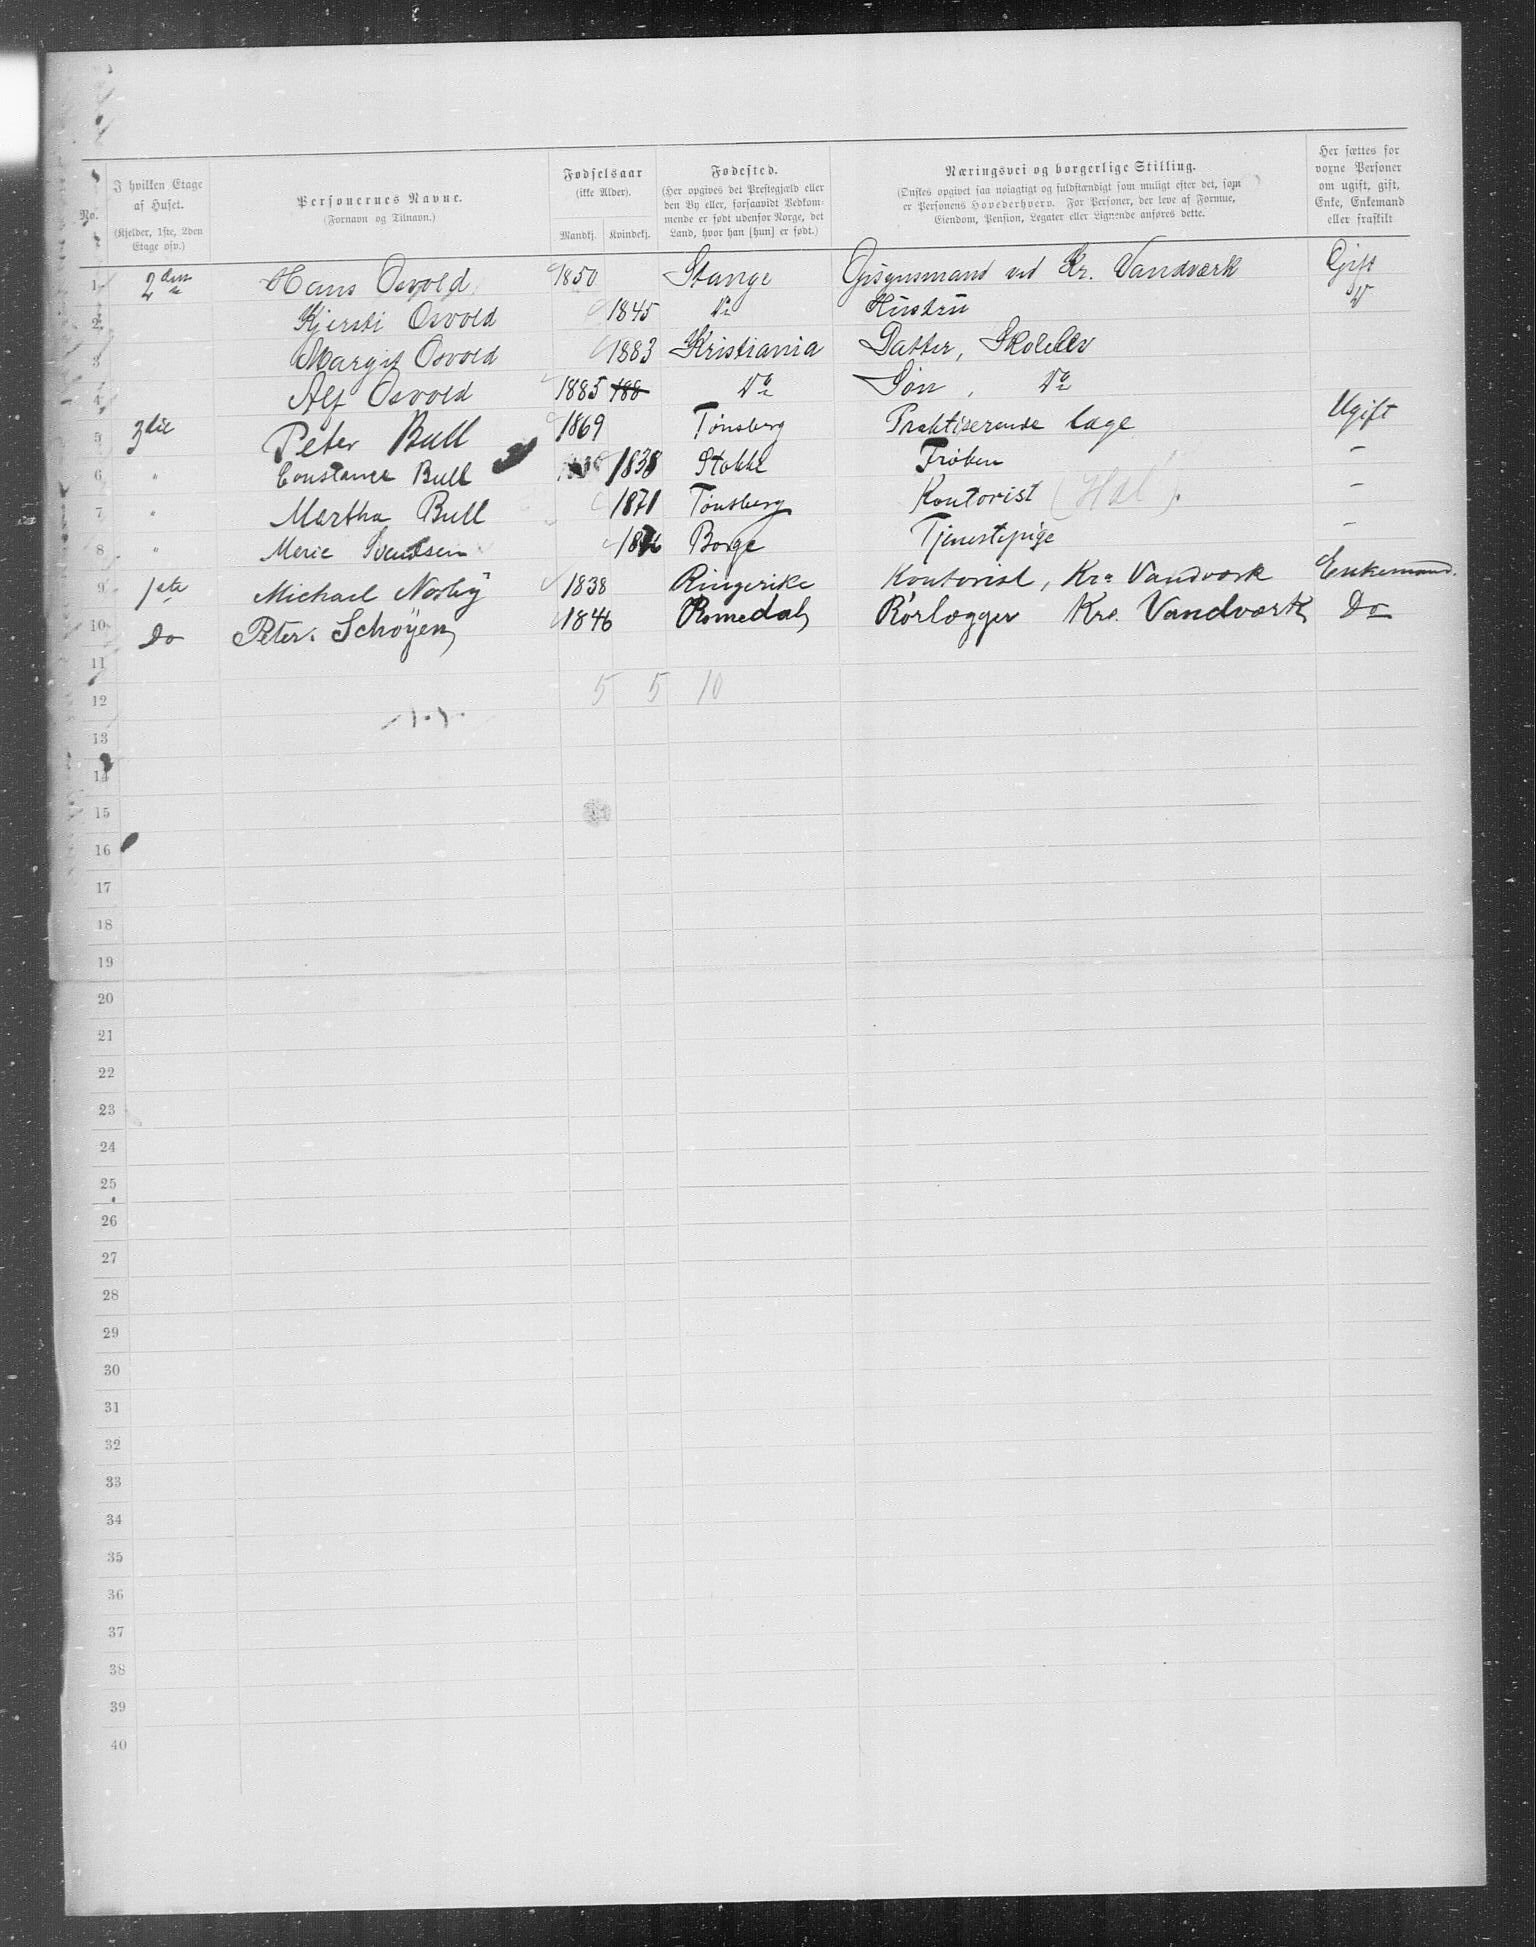 No.
I hvilken Etage af Huset. (Kjelder, 1ste, 2den Etage osv.)
Personernes Navne. (Fornavn og Tilnavn.)
Fødselsaar (ikke Alder). Mandkj. Kvindekj.
Fødested. (Her opgives det Prestegjæld eller den By eller, forsaavidt Vedkommende er født udenfor Norge, det Land, hvor han [hun] er født.)
Næringsvei og borgerlige Stilling. (Ønskes opgivet saa nøiagtigt og fuldstændigt som muligt efter det, som er Personens Hovederhverv. For Personer, der leve af Formue, Eiendom, Pension, Legater eller Lignende anføres dette.)
Her sættes for vorne Personer om ugift, gift, Enke, Enkemand eller fraskilt
1 2den Hans Osvold 1850 Stange Opsynsmand ved Kr. Vandværk Gift
2 Kjersti Osvold 1845 Do Hustru Do
3 Margit Osvold 1883 Kristiania Datter, Skoleelev
4 Alf Osvold 1885 188 Do Søn, Do
5 3die Peter Bull 1869 Tønsberg Praktiserende læge Ugift
6 " Constance Bull 1838 Stokke Frøken –
7 " Martha Bull 1871 Tønsberg Kontorist –
8 " Merie Svendsen Borge Tjenestepige –
9 1ste Michael Norby 1838 Ringerike Kontorist, Kra Vandværk Enkemand.
10 Do Peter Schøyen 1846 Romedal Rørlægger Kra. Vandværk Do
11
12 5 5 10
13
14
15
16
17
18
19
20
21
22
23
24
25
26
27
28
29
30
31
32
33
34
35
36
37
38
39
40